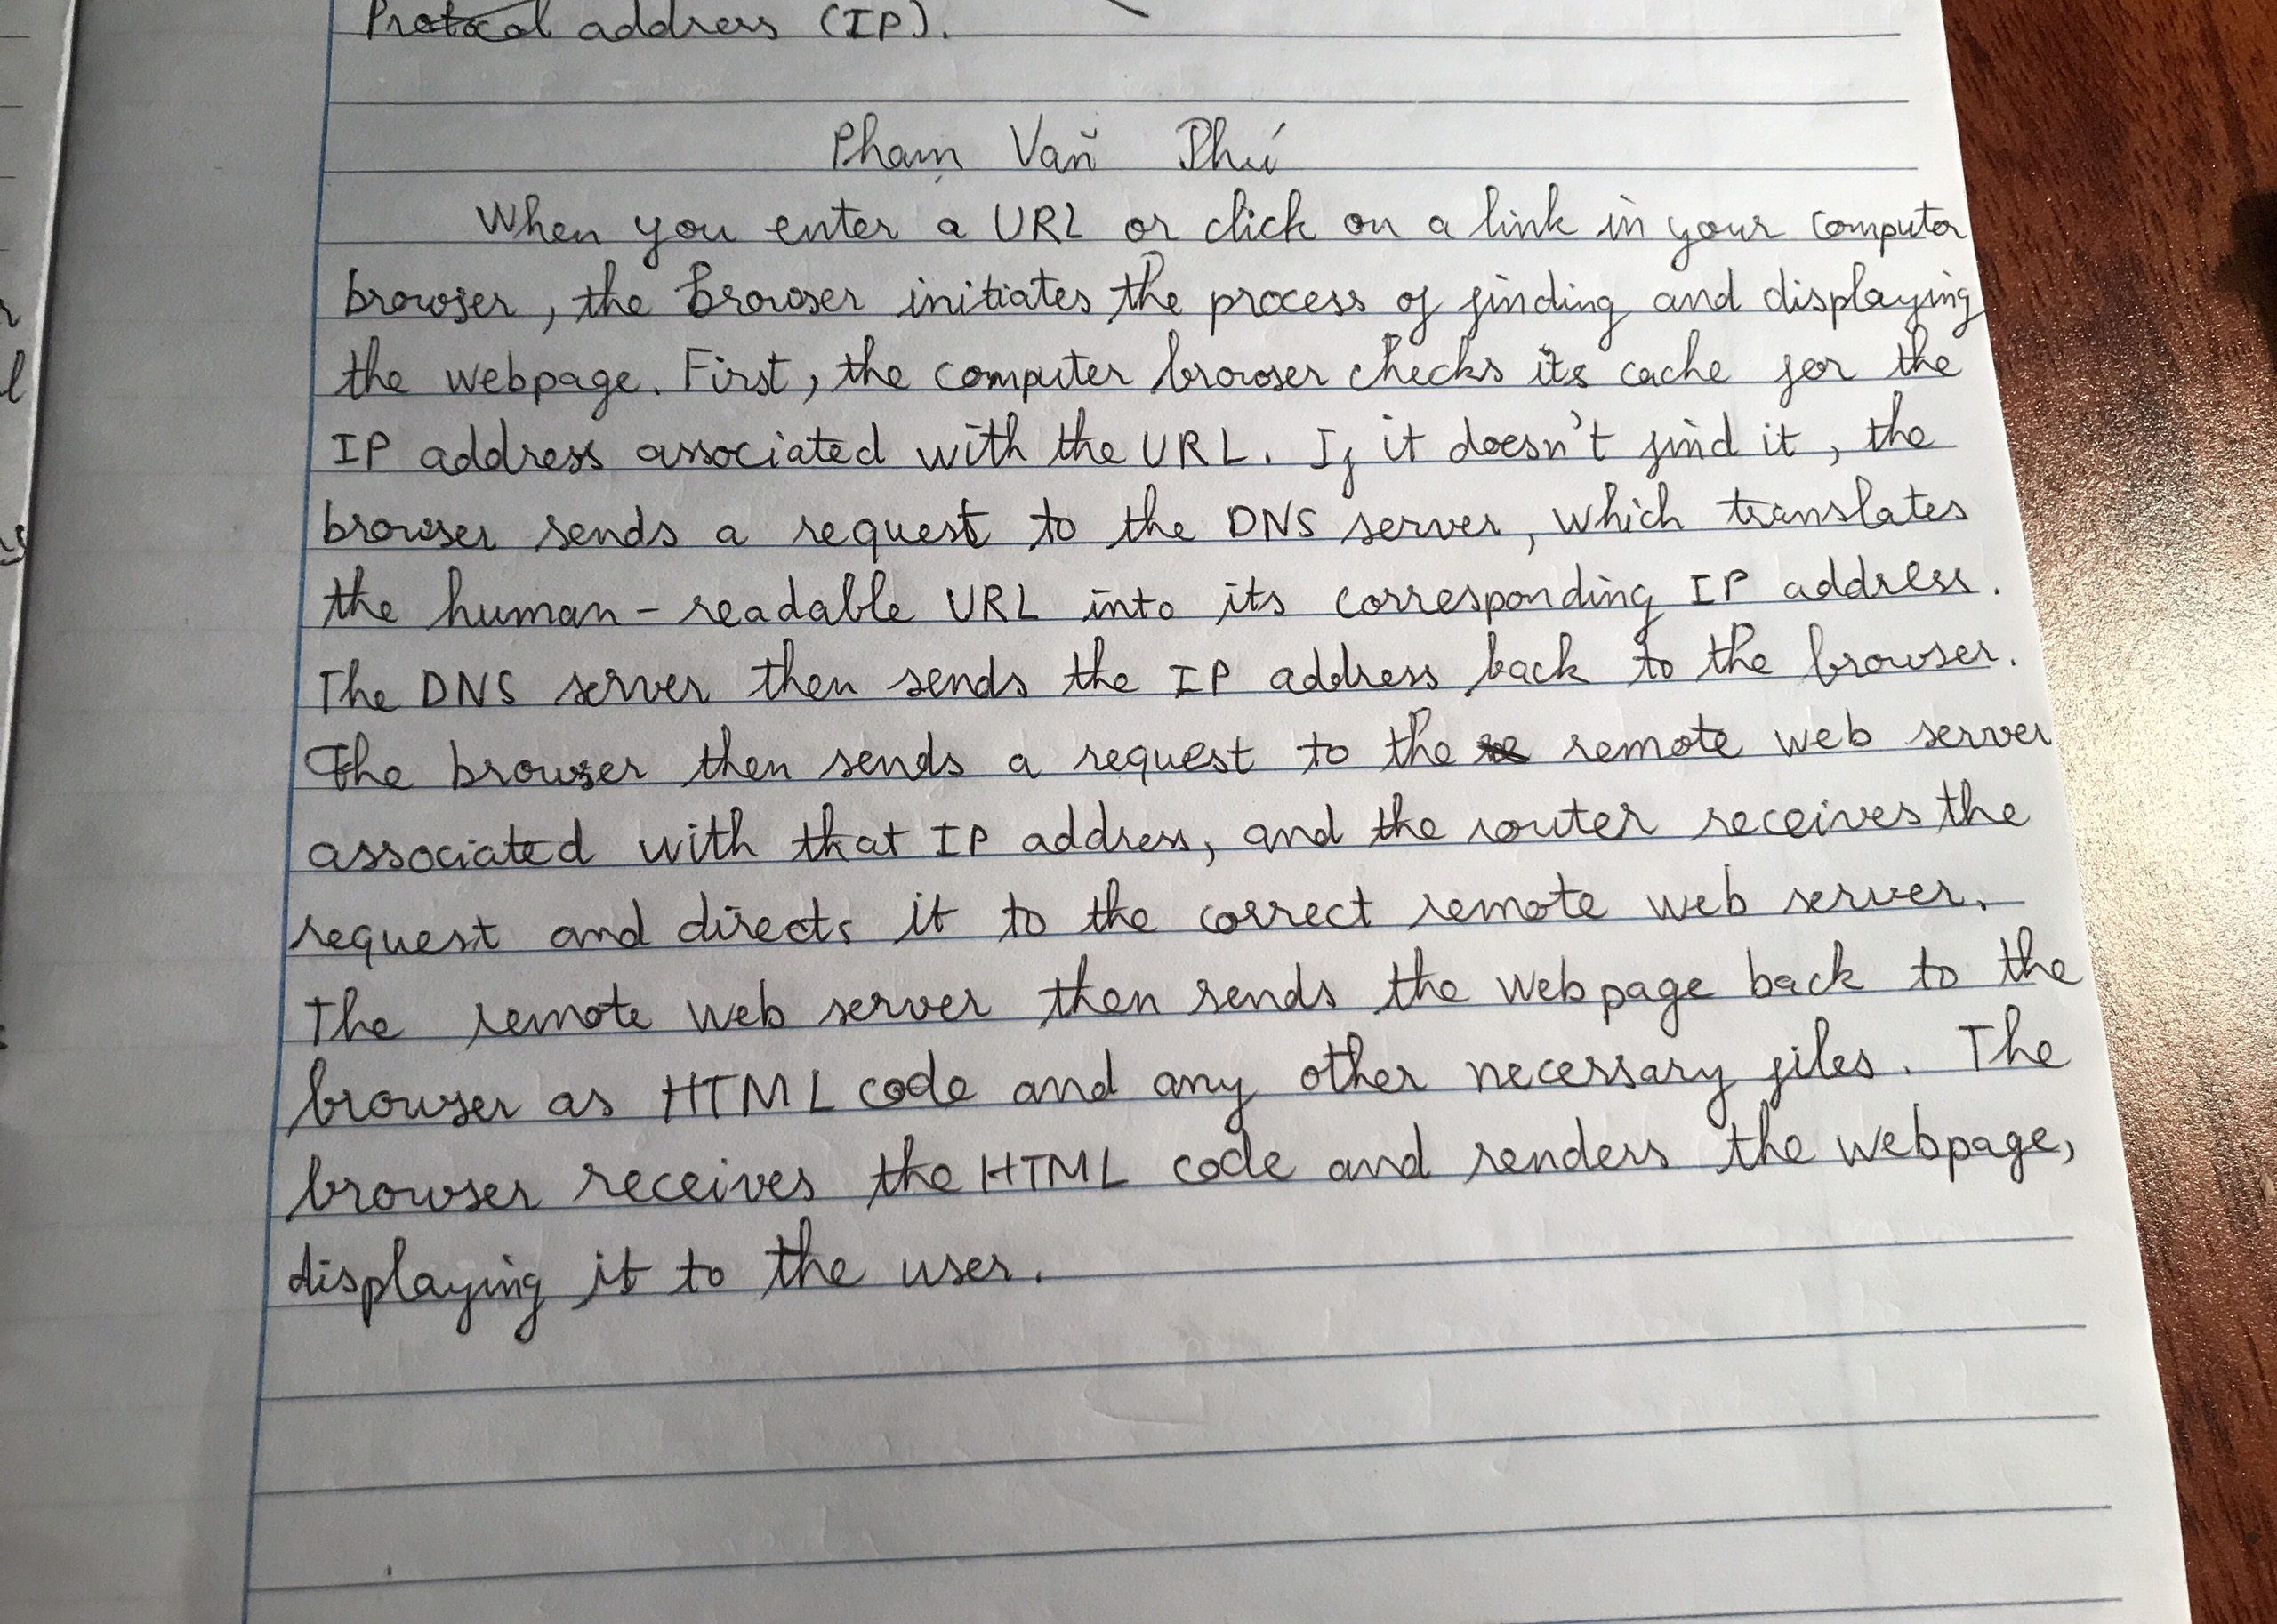 Protocol address (IP).
Phạm Văn Phú
When you enter a URL or click on a link in your computer
browser, the browser initiates the process of finding and displaying
the webpage. First, the computer browser checks its cache for the
IP address associated with the URL. If it doesn't find it, the
browser sends a request to the DNS server, which translates
the human-readable URL into its corresponding IP address.
The DNS server then sends the IP address back to the browser.
The browser then sends a request to the remote web server
associated with that IP address, and the router receives the
request and directs it to the correct remote web server.
The remote web server then sends the webpage back to the
browser as HTML code and any other necessary files. The
browser receives the HTML code and renders the webpage,
displaying it to the user.